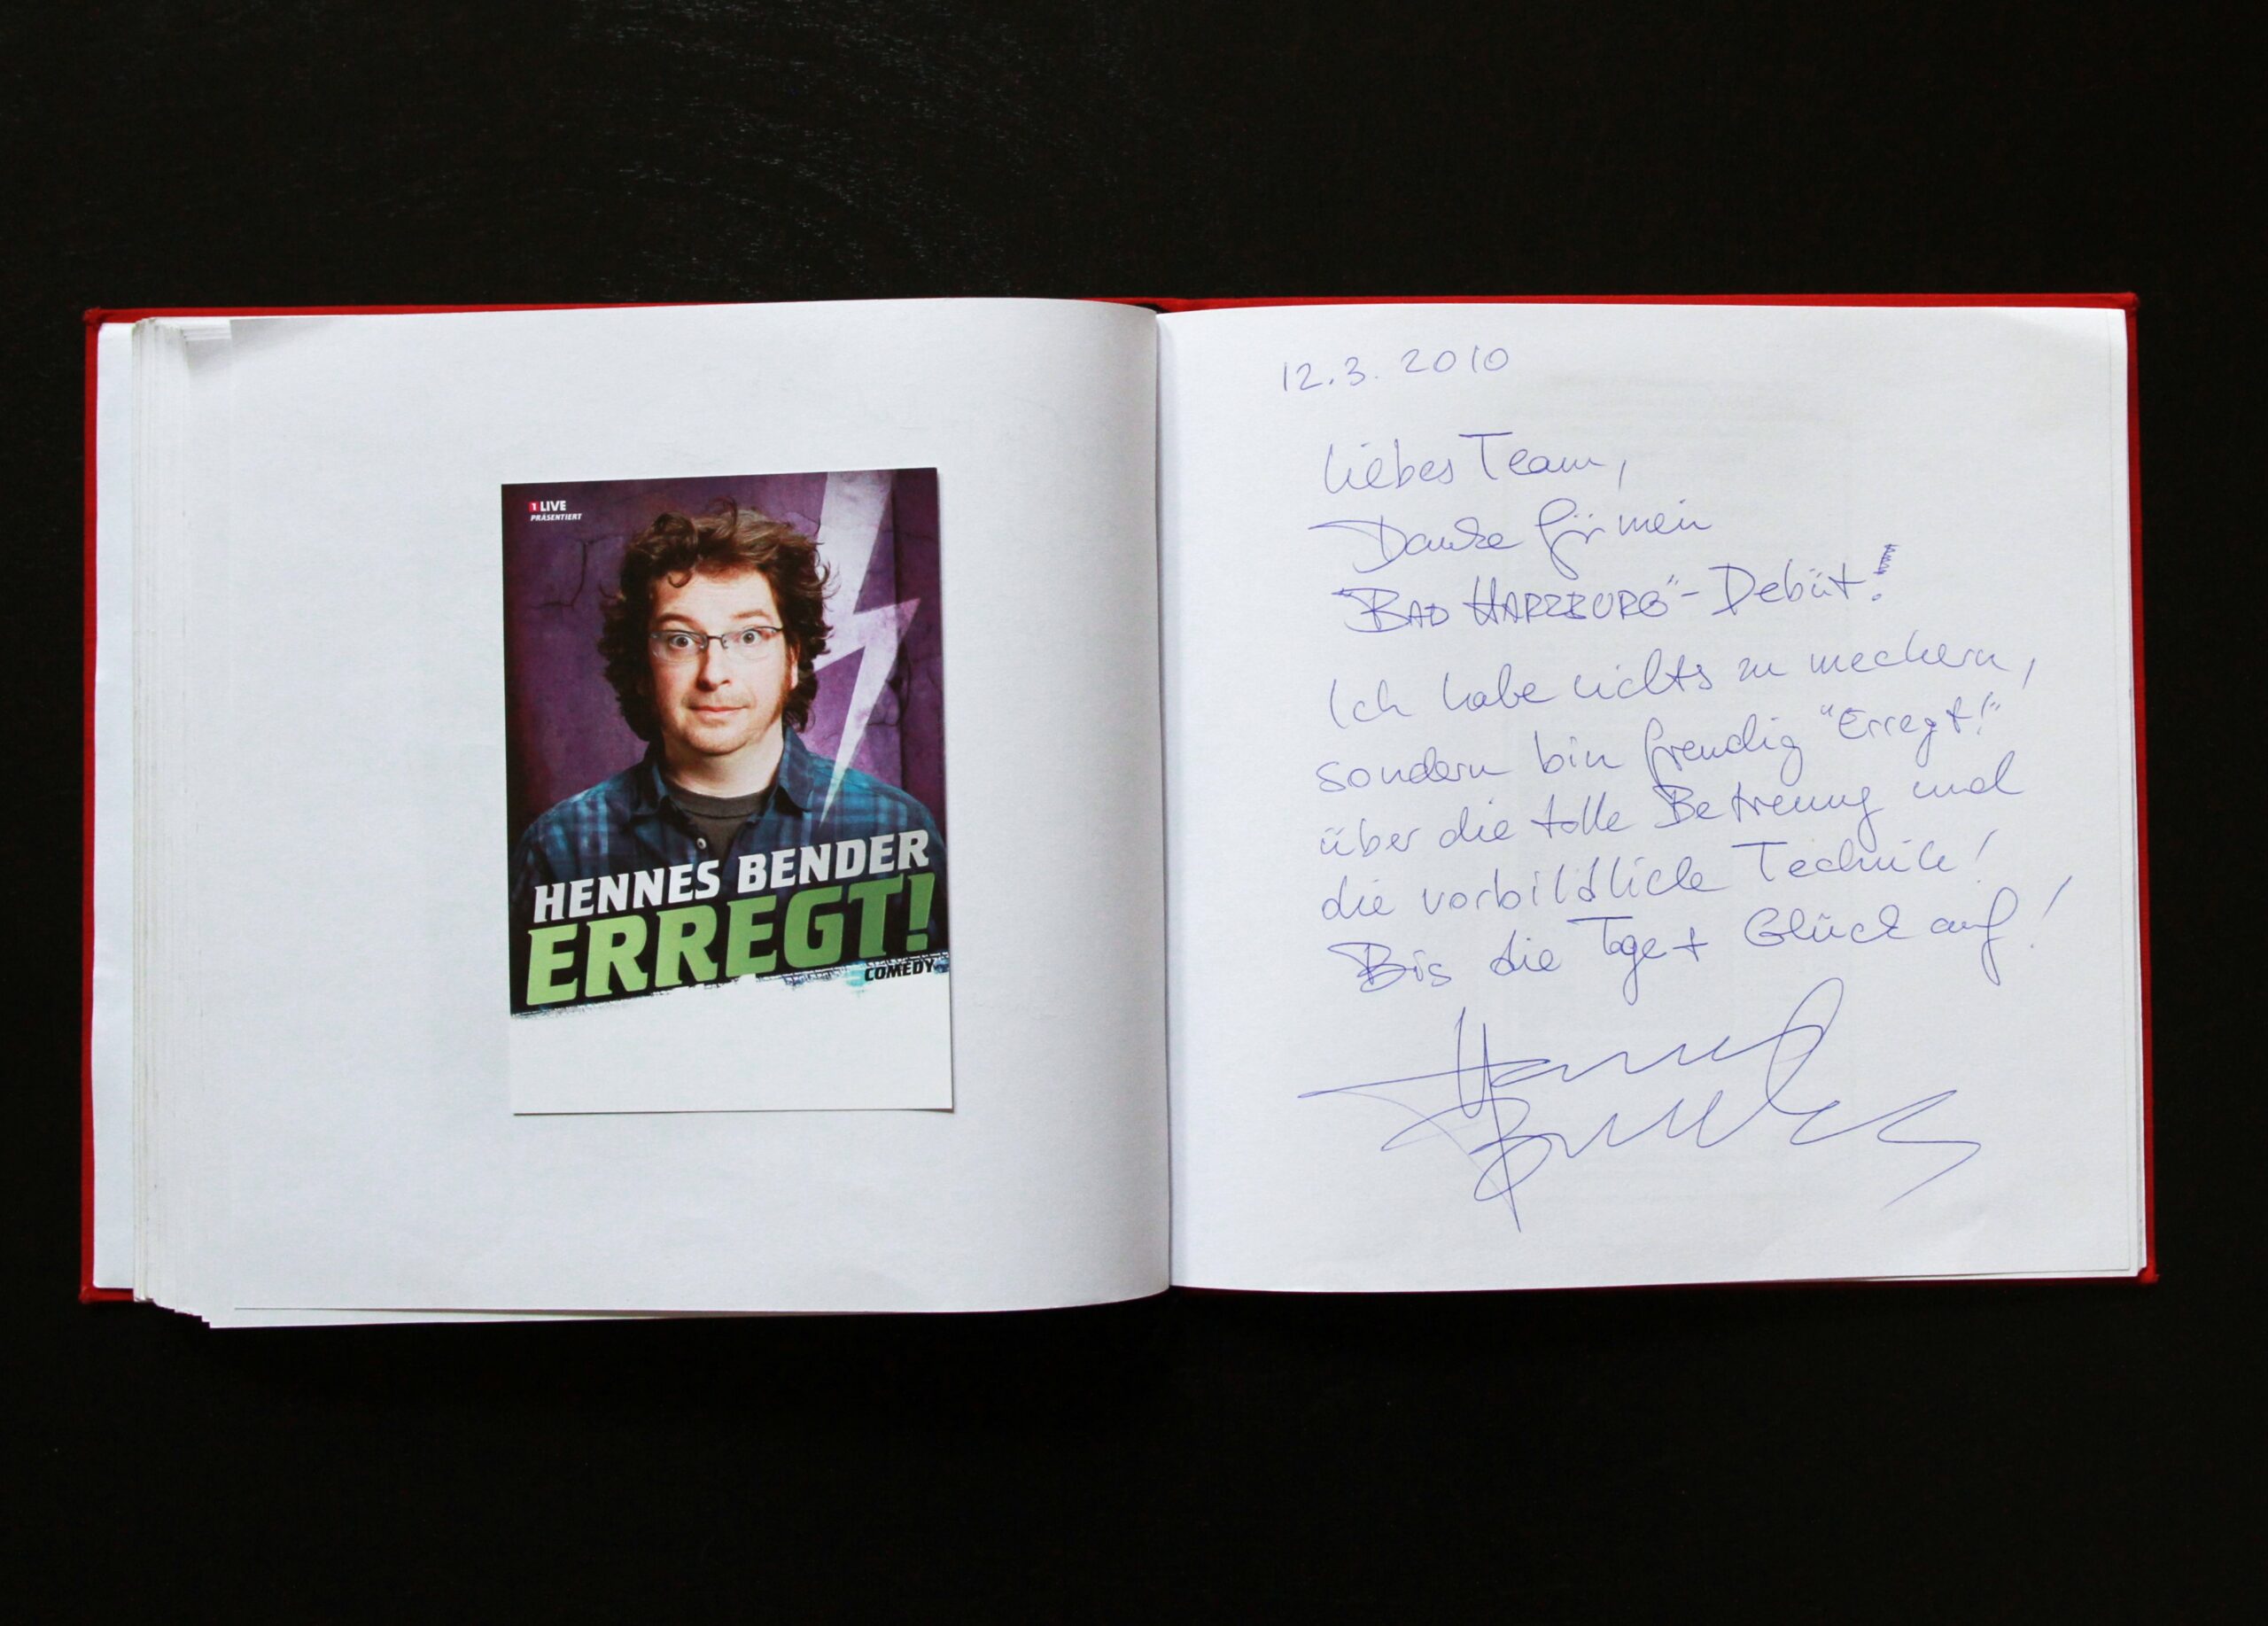 1 LIVE
PRÄSENTIERT
HENNES BENDER
ERREGT!
COMEDY
12.3. 2010
Liebes Team,
Danke für mein
"BAD HARZBURG"-Debüt!
Ich habe nichts zu meckern,
sondern bin freudig "Erregt!"
über die tolle Betreuung und
die vorbildliche Technik!
Bis die Tage + Glück auf!
Hennes
Bender